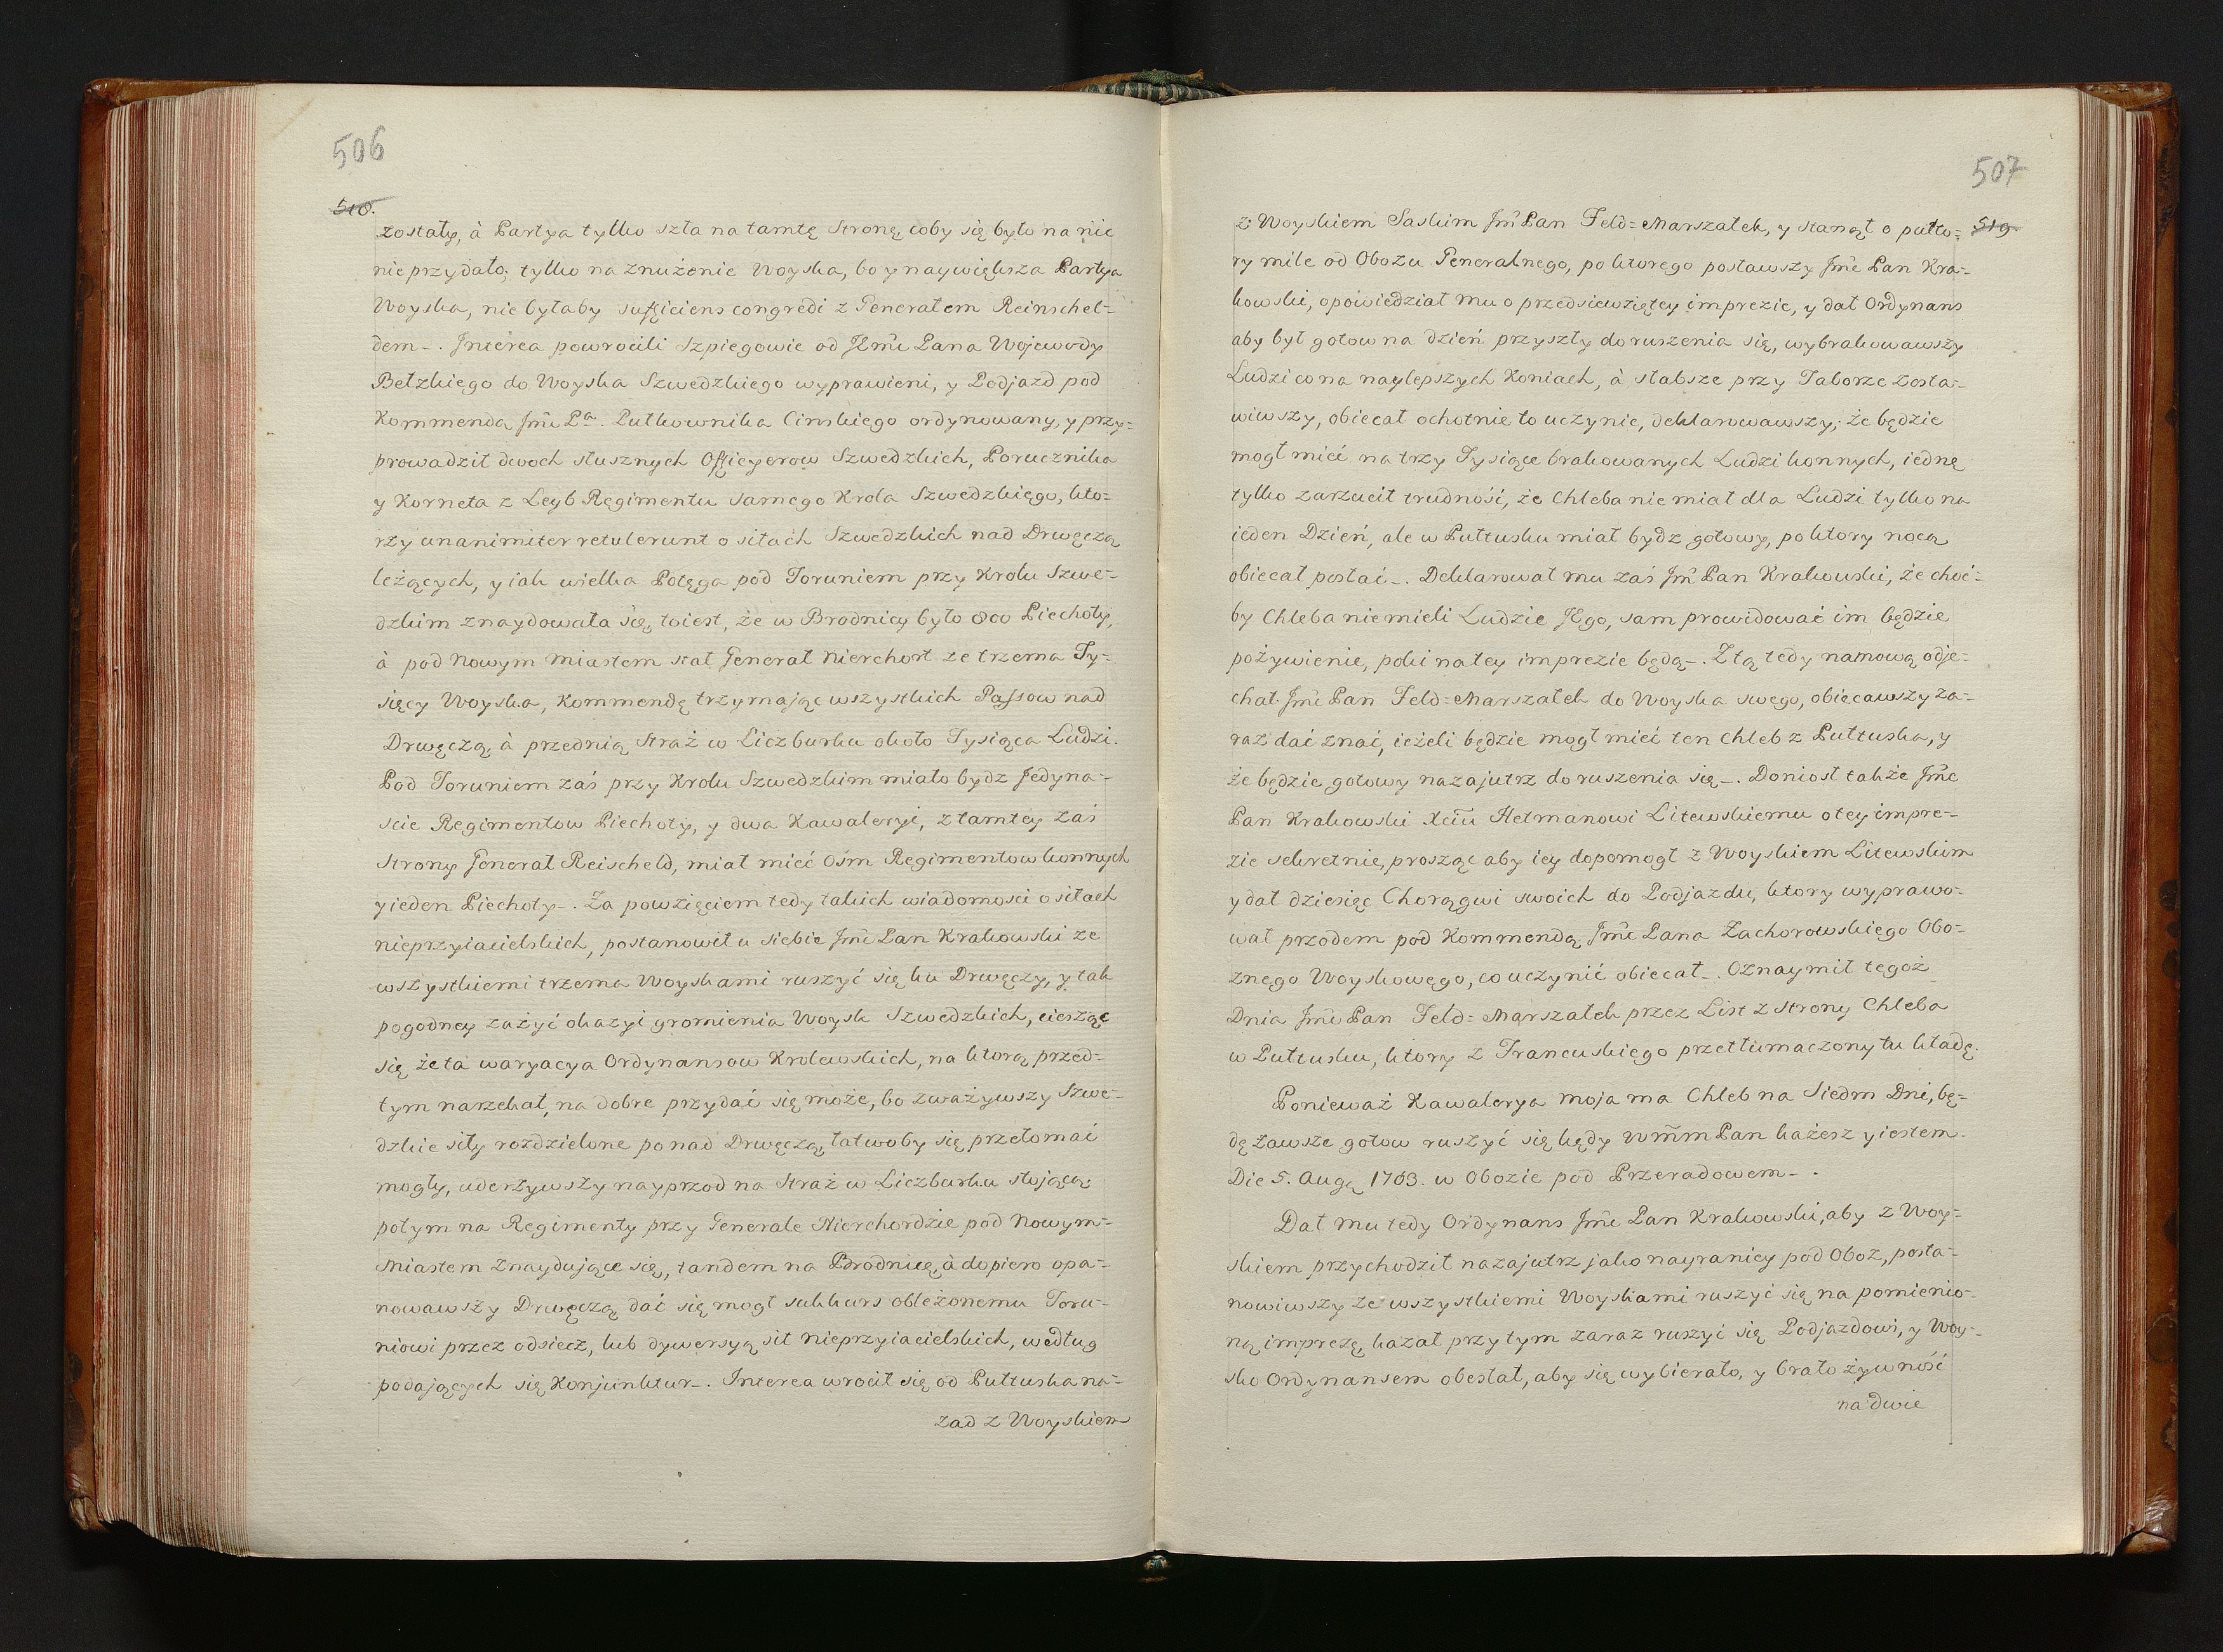 506
518.
zostały, à Partya tylko szła na tamtę stronę, coby się było na nic
nie przydało, tylko na znużenie Woyska, bo y naywiększa Partya
Woyska, nie byłaby sufficiens congredi z Generałem Reinschel-
dem-. Interea powrocili Szpiegowie od JEmć Pana Wojewody
Bełzkiego do Woyska Szwedzkiego wyprawieni, y Podjazd pod
Kommendą Jmć Pa. Pułkownika Cinskiego ordynowany, y przy=
prowadził dwoch słusznych Officyerow Szwedzkich, Porucznika
y Korneta z Leyb Regimentu samego Krola Szwedzkiego, kto=
rzy unanimiter retulerunt o siłach Szwedzkich nad Drwęczą
leżących, y iak wielka Potęga pod Toruniem przy Krolu Szwe-
dzkim znaydowała się, toiest, że w Brodnicy było 800 Piechoty,
à pod Nowym Miastem stał Generał Nierchort ze trzema Ty=
sięcy Woyska, Kommendę trzymając wszystkich Passow nad
Drwęczą, à przednią Straż w Liczburku około Tysiąca Ludzi.
Pod Toruniem zaś przy Krolu Szwedzkim miało bydz Jedyna-
ście Regimentow Piechoty, y dwa Kawaleryi, z tamtey zaś
Strony Generał Reischeld, miał mieć Ośm Regimentow konnych
y ieden Piechoty-. Za powzięciem tedy takich wiadomości o siłach
nieprzyiacielskich, postanowił u siebie Jmć Pan Krakowski ze
wszystkiemi trzema Woyskami ruszyć się ku Drwęczy, y tak
pogodney zażyć okazyi gromienia Woysk Szwedzkich, ciesząc
się że ta waryacya Ordynansow Krolewskich, na ktorą przed-
tym narzekał, na dobre przydać się może, bo zważywszy Szwe-
dzkie siły rozdzielone ponad Drwęczą, łatwoby się przełomać
mogły, uderzywszy nayprzod na Straż w Liczburku stojącą,
potym na Regimenty przy Generale Nierchordzie pod Nowym-
Miastem znaydujące się, tandem na Brodnicę, à dopiero opa-
nowawszy Drwęczą dać się mogł sukkurs oblężonemu Toru-
niowi przez odsiecz, lub dywersyą sił nieprzyiacielskich, według
podających się Konjunktur-. Interea wrocił się od Pułtuska na-
zad z Woyskiem
507
519.
z Woyskiem Saskim Jmć Pan Feld=Marszałek, y stanął o pułto=
ry mile od Obozu Generalnego, po ktorego posławszy Jmć Pan Kra-
kowski, opowiedział mu o przedsiewziętey imprezie, y dał Ordynans
aby był gotow na dzień przyszły do ruszenia się, wybrakowawszy
Ludzi co na naylepszych Koniach, à słabsze przy Taborze zosta-
wiwszy, obiecał ochotnie to uczynić, deklarowawszy, że będzie
mogł mieć na trzy Tysiące brakowanych Ludzi konnych, iednę
tylko zarzucił trudność, że Chleba nie miał dla Ludzi tylko na
ieden Dzień, ale w Pułtusku miał bydz gotowy, po ktory nocą
obiecał posłać-. Deklarował mu zaś Jmć Pan Krakowski, że choć=
by Chleba niemieli Ludzie JEgo, sam prowidować im będzie
pożywienie, poki na tey imprezie będą-. Z tą tedy namową odje-
chał Jmć Pan Feld=Marszałek do Woyska swego, obiecawszy za-
raz dać znać, ieżeli będzie mogł mieć ten Chleb z Pułtuska, y
że będzie gotowy nazajutrz do ruszenia się-. Doniosł także Jmć
Pan Krakowski Xciu Hetmanowi Litewskiemu o tey impre-
zie sekretnie, prosząc aby iey dopomogł z Woyskiem Litewskim
y dał dziesięć Chorągwi swoich do Podjazdu, ktory wyprawo-
wał przodem pod Kommendą Jmć Pana Zachorowskiego Obo-
znego Woyskowego, co uczynić obiecał-. Oznaymił tegoż
Dnia Jmć Pan Feld=Marszałek przez List z strony Chleba
w Pułtusku, ktory z Francuskiego przetłumaczony tu kładę.
Ponieważ Kawalerya moja ma Chleb na Siedm Dni, bę-
dę zawsze gotow ruszyć się kędy Wmm Pan każesz y iestem.
Die 5. Augą 1703. w Obozie pod Przeradowem-.
Dał mu tedy Ordynans Jmć Pan Krakowski, aby z Woy=
skiem przychodził nazajutrz jako nayraniey pod Oboz, posta-
nowiwszy ze wszystkiemi Woyskami ruszyć się na pomienio-
ną imprezę, kazał przytym zaraz ruszyć się Podjazdowi, y Woy-
sko Ordynansem obesłał, aby się wybierało, y brało żywność
na dwie